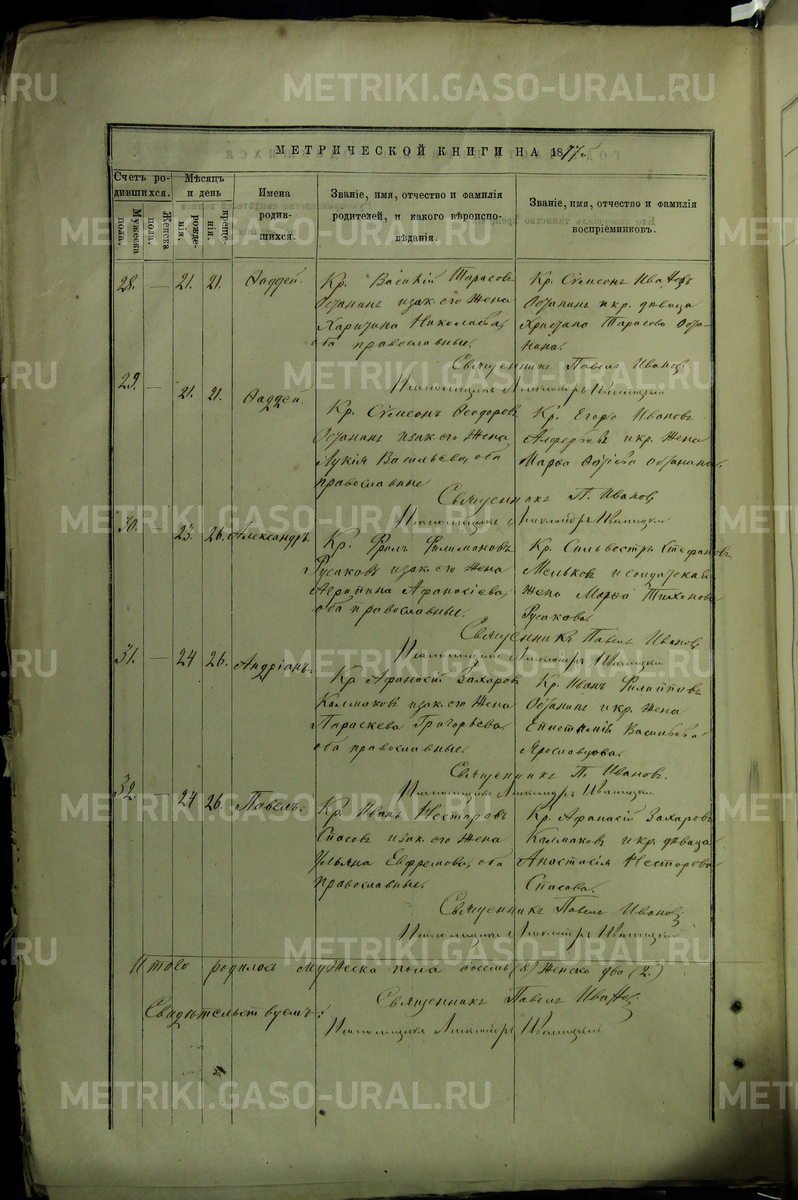 METRIKI.GASO-URAL.RU
МЕТРИЧЕСКОЙ КНИГИ НА 187
Счетъ ро-
дившихся.
Мужеска
пола.
Женска
пола.
Мѣсяцъ
и день
рожде-
нія.
креще-
нія.
Имена
родив-
шихся.
Званіе, имя, отчество и фамилія
родителей, и какого вѣроиспо-
вѣданія.
Званіе, имя, отчество и фамилія
воспріемниковъ.
28. — 21. 21. Фаддей.
Кр. Василій Тарасовъ
Останинъ и зак. его жена
Харитина Николаева,
оба православные.
Кр. Сѵмеонъ Ивановъ
Останинъ и кр. дѣвица
Христина Тарасова Оста-
нина.
Священникъ Павелъ Ивановъ
29. — 21. 21. Фаддей.
Кр. Сѵмеонъ Ѳеодоровъ
Останинъ и зак. его жена
Лукія Васильева, оба
православные
Кр. Егоръ Ивановъ
Алферьевъ и кр. жена
Марѳа Останина.
Священникъ П. Ивановъ
30. — 23. 26. Александръ.
Кр. Фролъ Филимоновъ
Русаковъ и зак. его жена
Агрипина Афанасіева,
оба православные.
Кр. Сильвестръ Стефановъ
Мельковъ и солдатская
жена Марѳа Тихонова
Русакова.
Священникъ Павелъ Ивановъ
31. — 24 26. Андріанъ.
Кр Афанасій Захаровъ
Калмаковъ и зак. его жена
Параскева Григорьева
оба православные.
Кр. Иванъ Филипповъ
Останинъ и кр. жена
Епистимія Васильева
Ярославцова.
Священникъ П. Ивановъ.
32. — 24 26. Павелъ.
Кр. Иванъ Несторовъ
Спасовъ и зак. его жена
Ульяна Ефремова, оба
православные.
Кр. Афанасій Захаровъ
Калмаковъ и кр. дѣвица
Анастасія Несторова
Спасова.
Священникъ Павелъ Ивановъ
Итого родилось мужеска пола восемь (8) женска два (2.)
Священникъ Павелъ Ивановъ
Свидѣтельствуемъ: